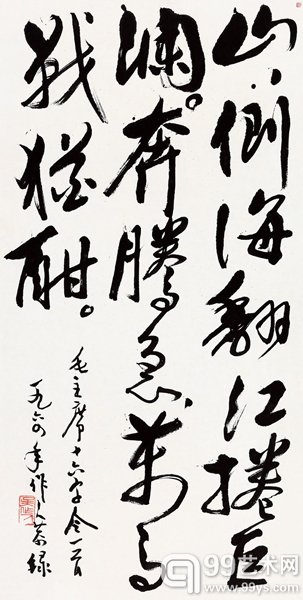 山，倒海翻江捲巨
瀾。奔騰急，萬馬
戰猶酣。
毛主席十六字令一首
一九六四年作 錄
99艺术网
www.99ys.com